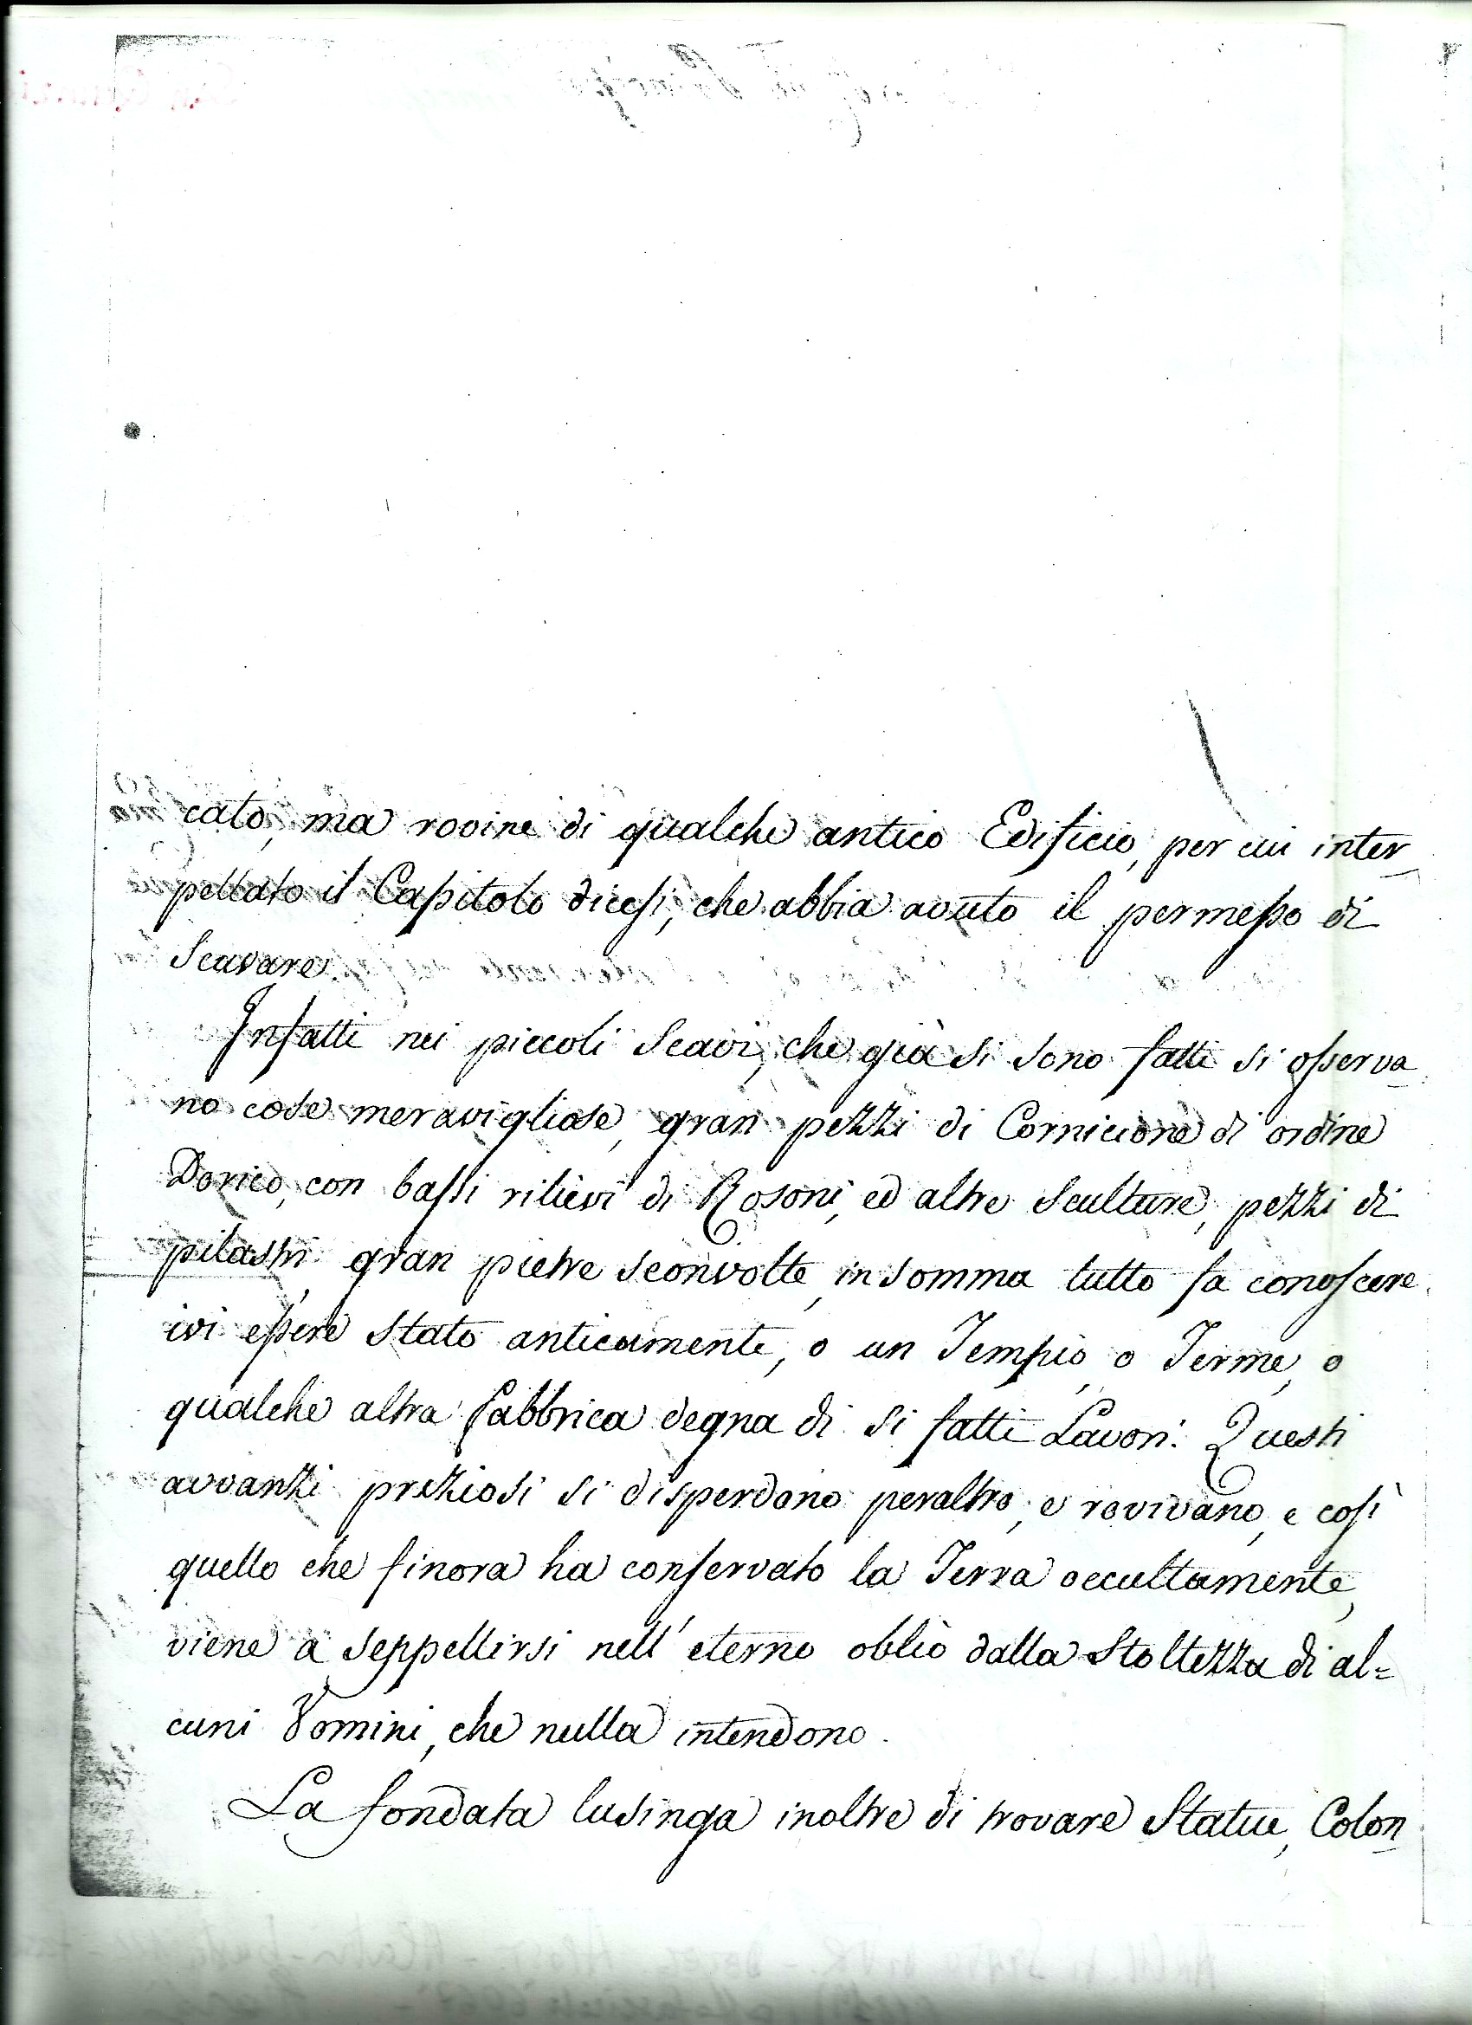 cato, ma rovine di qualche antico Edificio, per cui inter-
pellato il Capitolo dicesi, che abbia avuto il permesso di
Scavare.
Infatti nei piccoli Scavi, che già si sono fatti si osserva-
no cose meravigliose, gran pezzi di Cornicione di ordine
Dorico, con bassi rilievi di Rosoni, ed altre Sculture, pezzi di
pilastri, gran pietre sconvolte, in somma tutto fa conoscere
ivi essere Stato anticamente, o un Tempio, o Terme, o
qualche altra fabbrica degna di si fatti Lavori. Questi
avvanzi preziosi si disperdono peraltro, e rovivano, e così
quello che finora ha conservato la Terra occultamente,
viene a seppellirsi nell' eterno oblio dalla Stoltezza di al=
cuni Uomini, che nulla intendono.
La fondata lusinga inoltre di trovare Statue, Colon-